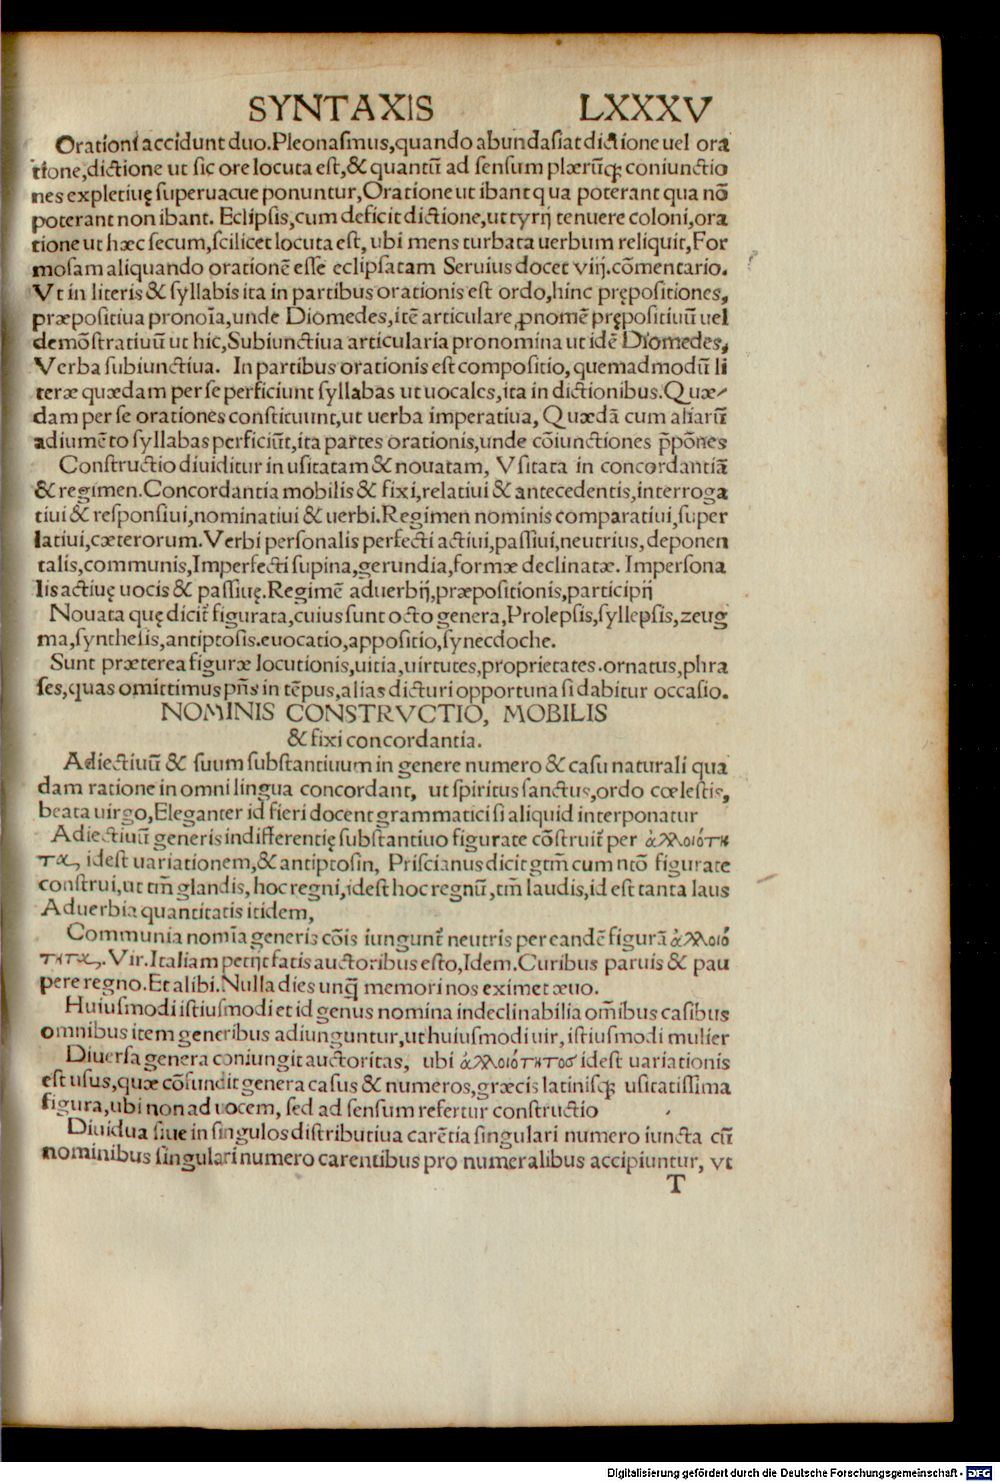 SYNTAXIS LXXXV
Orationi accidunt duo.Pleonasmus,quando abundasiat dictione uel ora
tione,dictione ut sic ore locuta est,& quantū ad sensum plærūq; coniunctio
nes expletiuę superuacue ponuntur,Oratione ut ibant qua poterant qua nō
poterant non ibant. Eclipsis,cum deficit dictione,ut tyrij tenuere coloni,ora
tione ut hæc secum,scilicet locuta est, ubi mens turbata uerbum reliquit,For
mosam aliquando orationē esse eclipsatam Seruius docet viij.cōmentario.
Vt in literis & syllabis ita in partibus orationis est ordo,hinc prępositiones,
præpositiua pronoīa,unde Diomedes,itē articulare ꝓnomē prępositiuū uel
demōstratiuū ut hic,Subiunctiua articularia pronomina ut idē Diomedes,
Verba subiunctiua. In partibus orationis est compositio,quemadmodū li
teræ quædam per se perficiunt syllabas ut uocales,ita in dictionibus.Quæ-
dam per se orationes constituunt,ut uerba imperatiua, Quædā cum aliarū
adiumēto syllabas perficiūt,ita partes orationis,unde cōiunctiones p̄pōnes
Constructio diuiditur in usitatam & nouatam, Vsitata in concordantiā
& regimen.Concordantia mobilis & fixi,relatiui & antecedentis,interroga
tiui & responsiui,nominatiui & uerbi.Regimen nominis comparatiui,super
latiui,cæterorum.Verbi personalis perfecti actiui,passiui,neutrius,deponen
talis,communis,Imperfecti supina,gerundia,formæ declinatæ. Impersona
lis actiuę uocis & passiuę.Regimē aduerbij,præpositionis,participij
Nouata quę dicit̄ figurata,cuius sunt octo genera,Prolepsis,syllepsis,zeug
ma,synthesis,antiptosis.euocatio,appositio,synecdoche.
Sunt præterea figuræ locutionis,uitia,uirtutes,proprietates.ornatus,phra
ses,quas omittimus pn̄s in tēpus,alias dicturi opportuna si dabitur occasio.
NOMINIS CONSTRVCTIO, MOBILIS
& fixi concordantia.
Adiectiuū & suum substantiuum in genere numero & casu naturali qua
dam ratione in omni lingua concordant, ut spiritus sanctus,ordo cœlestis,
beata uirgo,Eleganter id fieri docent grammatici si aliquid interponatur
Adiectiuū generis indifferentię substantiuo figurate cōstruit̄ per ἀλλοιότη
τα, idest uariationem,& antiptosin, Priscianus dicit gtm̄ cum ntō figurate
construi,ut tm̄ glandis, hoc regni,idest hoc regnū,tm̄ laudis,id est tanta laus
Aduerbia quantitatis itidem,
Communia nomīa generis cōis iungunt̄ neutris per eandē figurā ἀλλοιό
τητα,.Vir.Italiam petijt fatis auctoribus esto,Idem.Curibus paruis & pau
pere regno.Et alibi.Nulla dies unq̄ memori nos eximet æuo.
Huiusmodi istiusmodi et id genus nomina indeclinabilia om̄ibus casibus
omnibus item generibus adiunguntur,ut huiusmodi uir, istiusmodi mulier
Diuersa genera coniungit auctoritas, ubi ἀλλοιότητοσ idest uariationis
est usus,quæ cōfundit genera casus & numeros,græcis latinisq; usitatissima
figura,ubi non ad uocem, sed ad sensum refertur constructio
Diuidua siue in singulos distributiua carētia singulari numero iuncta cū
nominibus singulari numero carentibus pro numeralibus accipiuntur, vt
T
Digitalisierung gefördert durch die Deutsche Forschungsgemeinschaft - DFG